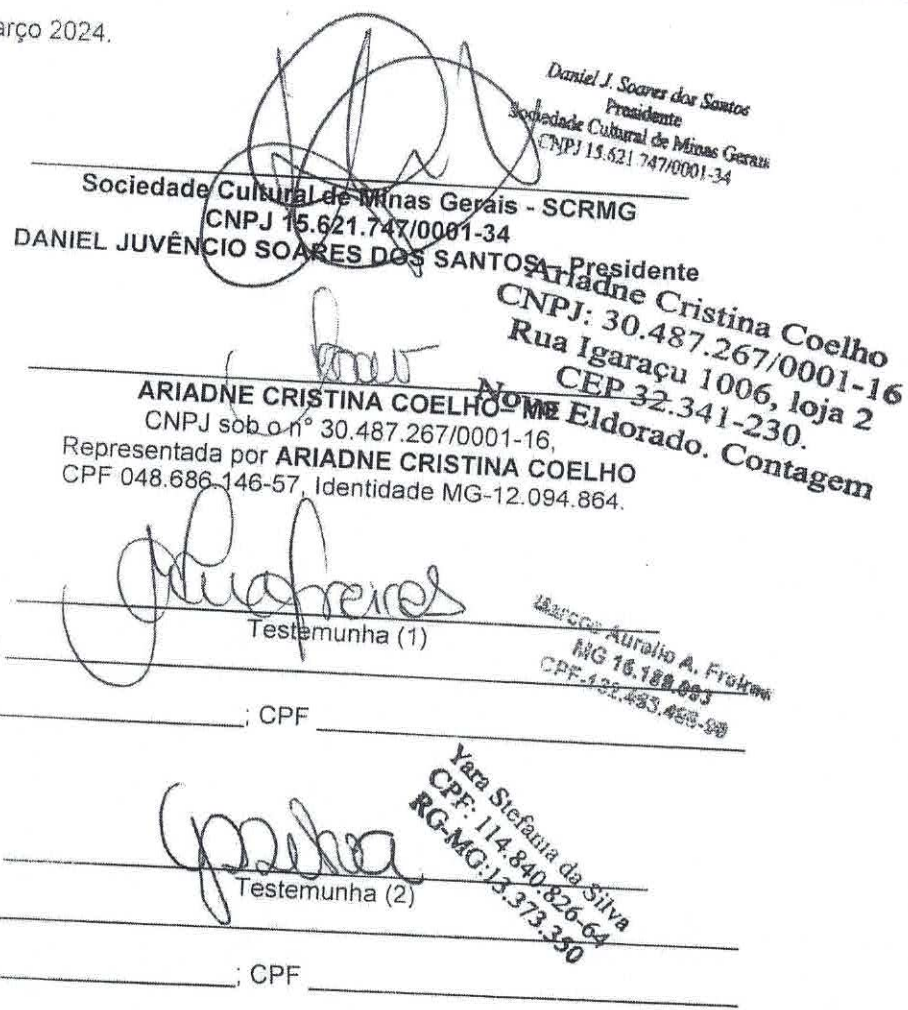 arço 2024.
Daniel J. Soares dos Santos
Presidente
Sociedade Cultural de Minas Gerais
CNPJ 15.621.747/0001-34
Sociedade Cultural de Minas Gerais - SCRMG
CNPJ 15.621.747/0001-34
DANIEL JUVÊNCIO SOARES DOS SANTOS - Presidente
Ariadne Cristina Coelho
CNPJ: 30.487.267/0001-16
Rua Igaraçu 1006, loja 2
CEP 32.341-230.
Novo Eldorado. Contagem
ARIADNE CRISTINA COELHO - ME
CNPJ sob o nº 30.487.267/0001-16,
Representada por ARIADNE CRISTINA COELHO
CPF 048.686.146-57, Identidade MG-12.094.864.
Testemunha (1)
Marcos Aurelio A. Freitas
MG
CPF
; CPF
Yara Stefania da Silva
CPF: 114.840.826-64
RG-MG:13.373.350
Testemunha (2)
; CPF